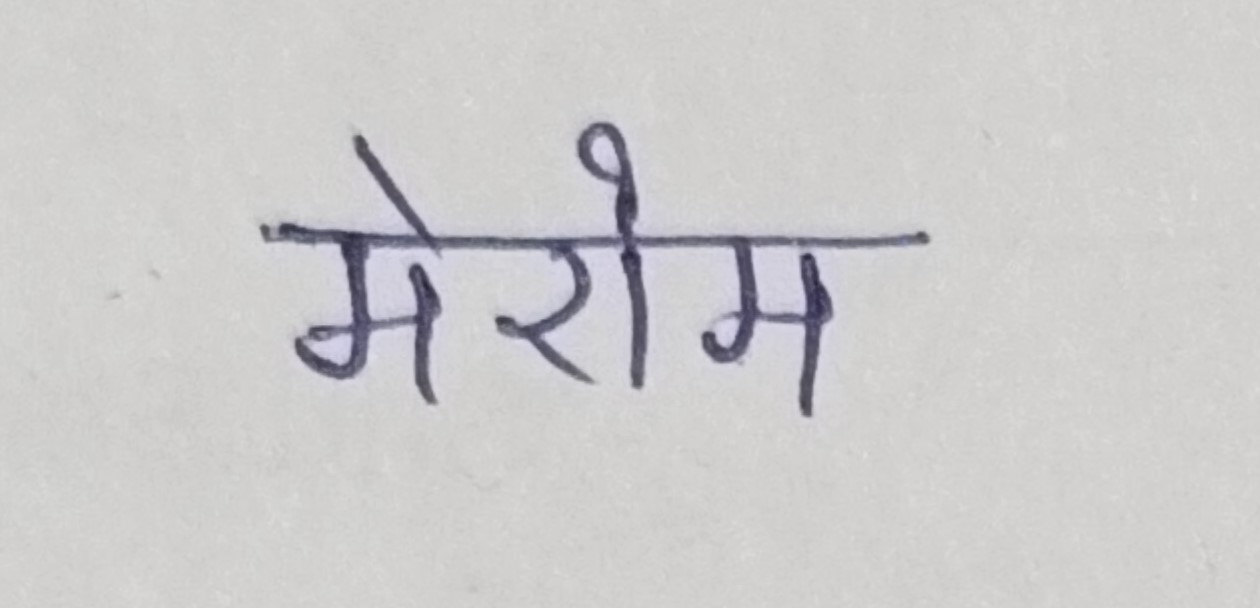 मेरोम